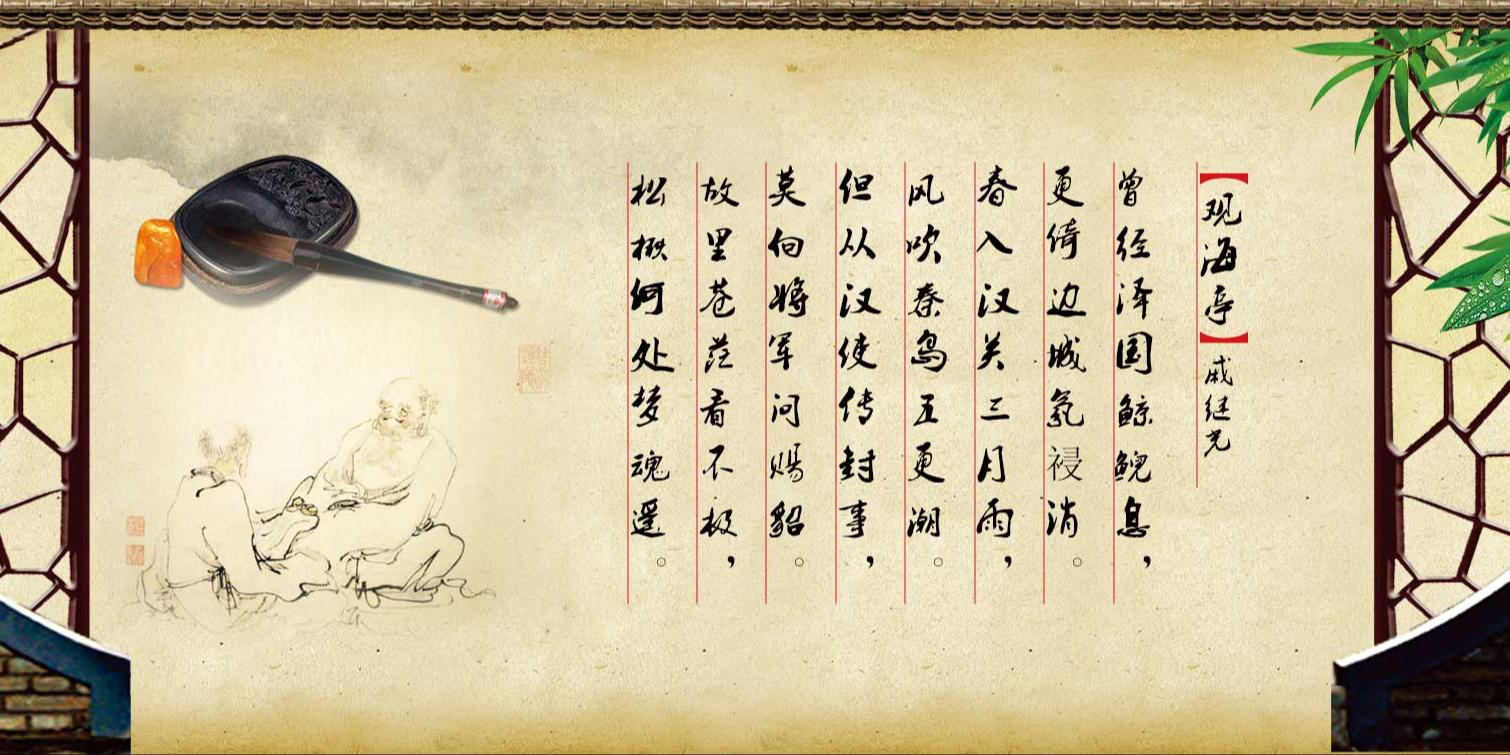 【观海亭】戚继光
曾经泽国鲸鲵息，
更倚边城氛祲消。
春入汉关三月雨，
风吹秦岛五更潮。
但从汉使传封事，
莫向将军问赐貂。
故里苍茫看不极，
松楸何处梦魂遥。